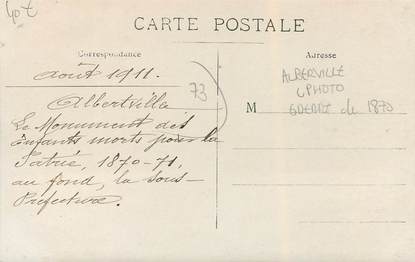 40€
CARTE POSTALE
Correspondance
Adresse
août 1911.
73
Albertville
Le Monument des
Enfants morts pour la
Patrie, 1870-71,
au fond, la Sous-
Préfecture.
ALBERVILLE
CPHOTO
GUERRE de 1870
M